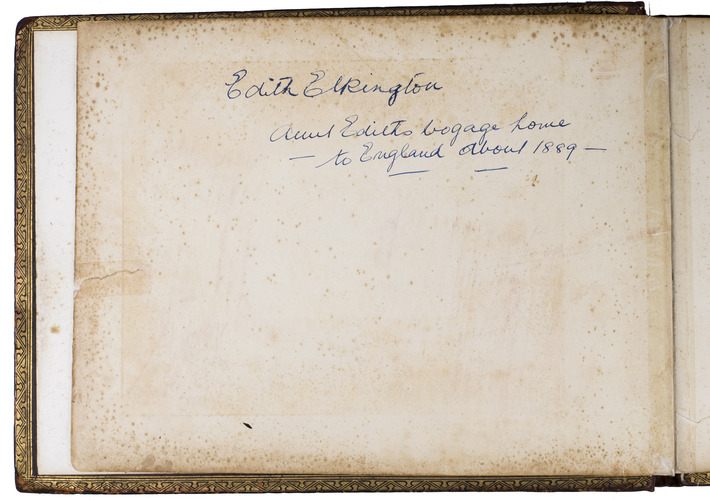 Edith Elkington
Aunt Edith's vogage home
– to England about 1889 –